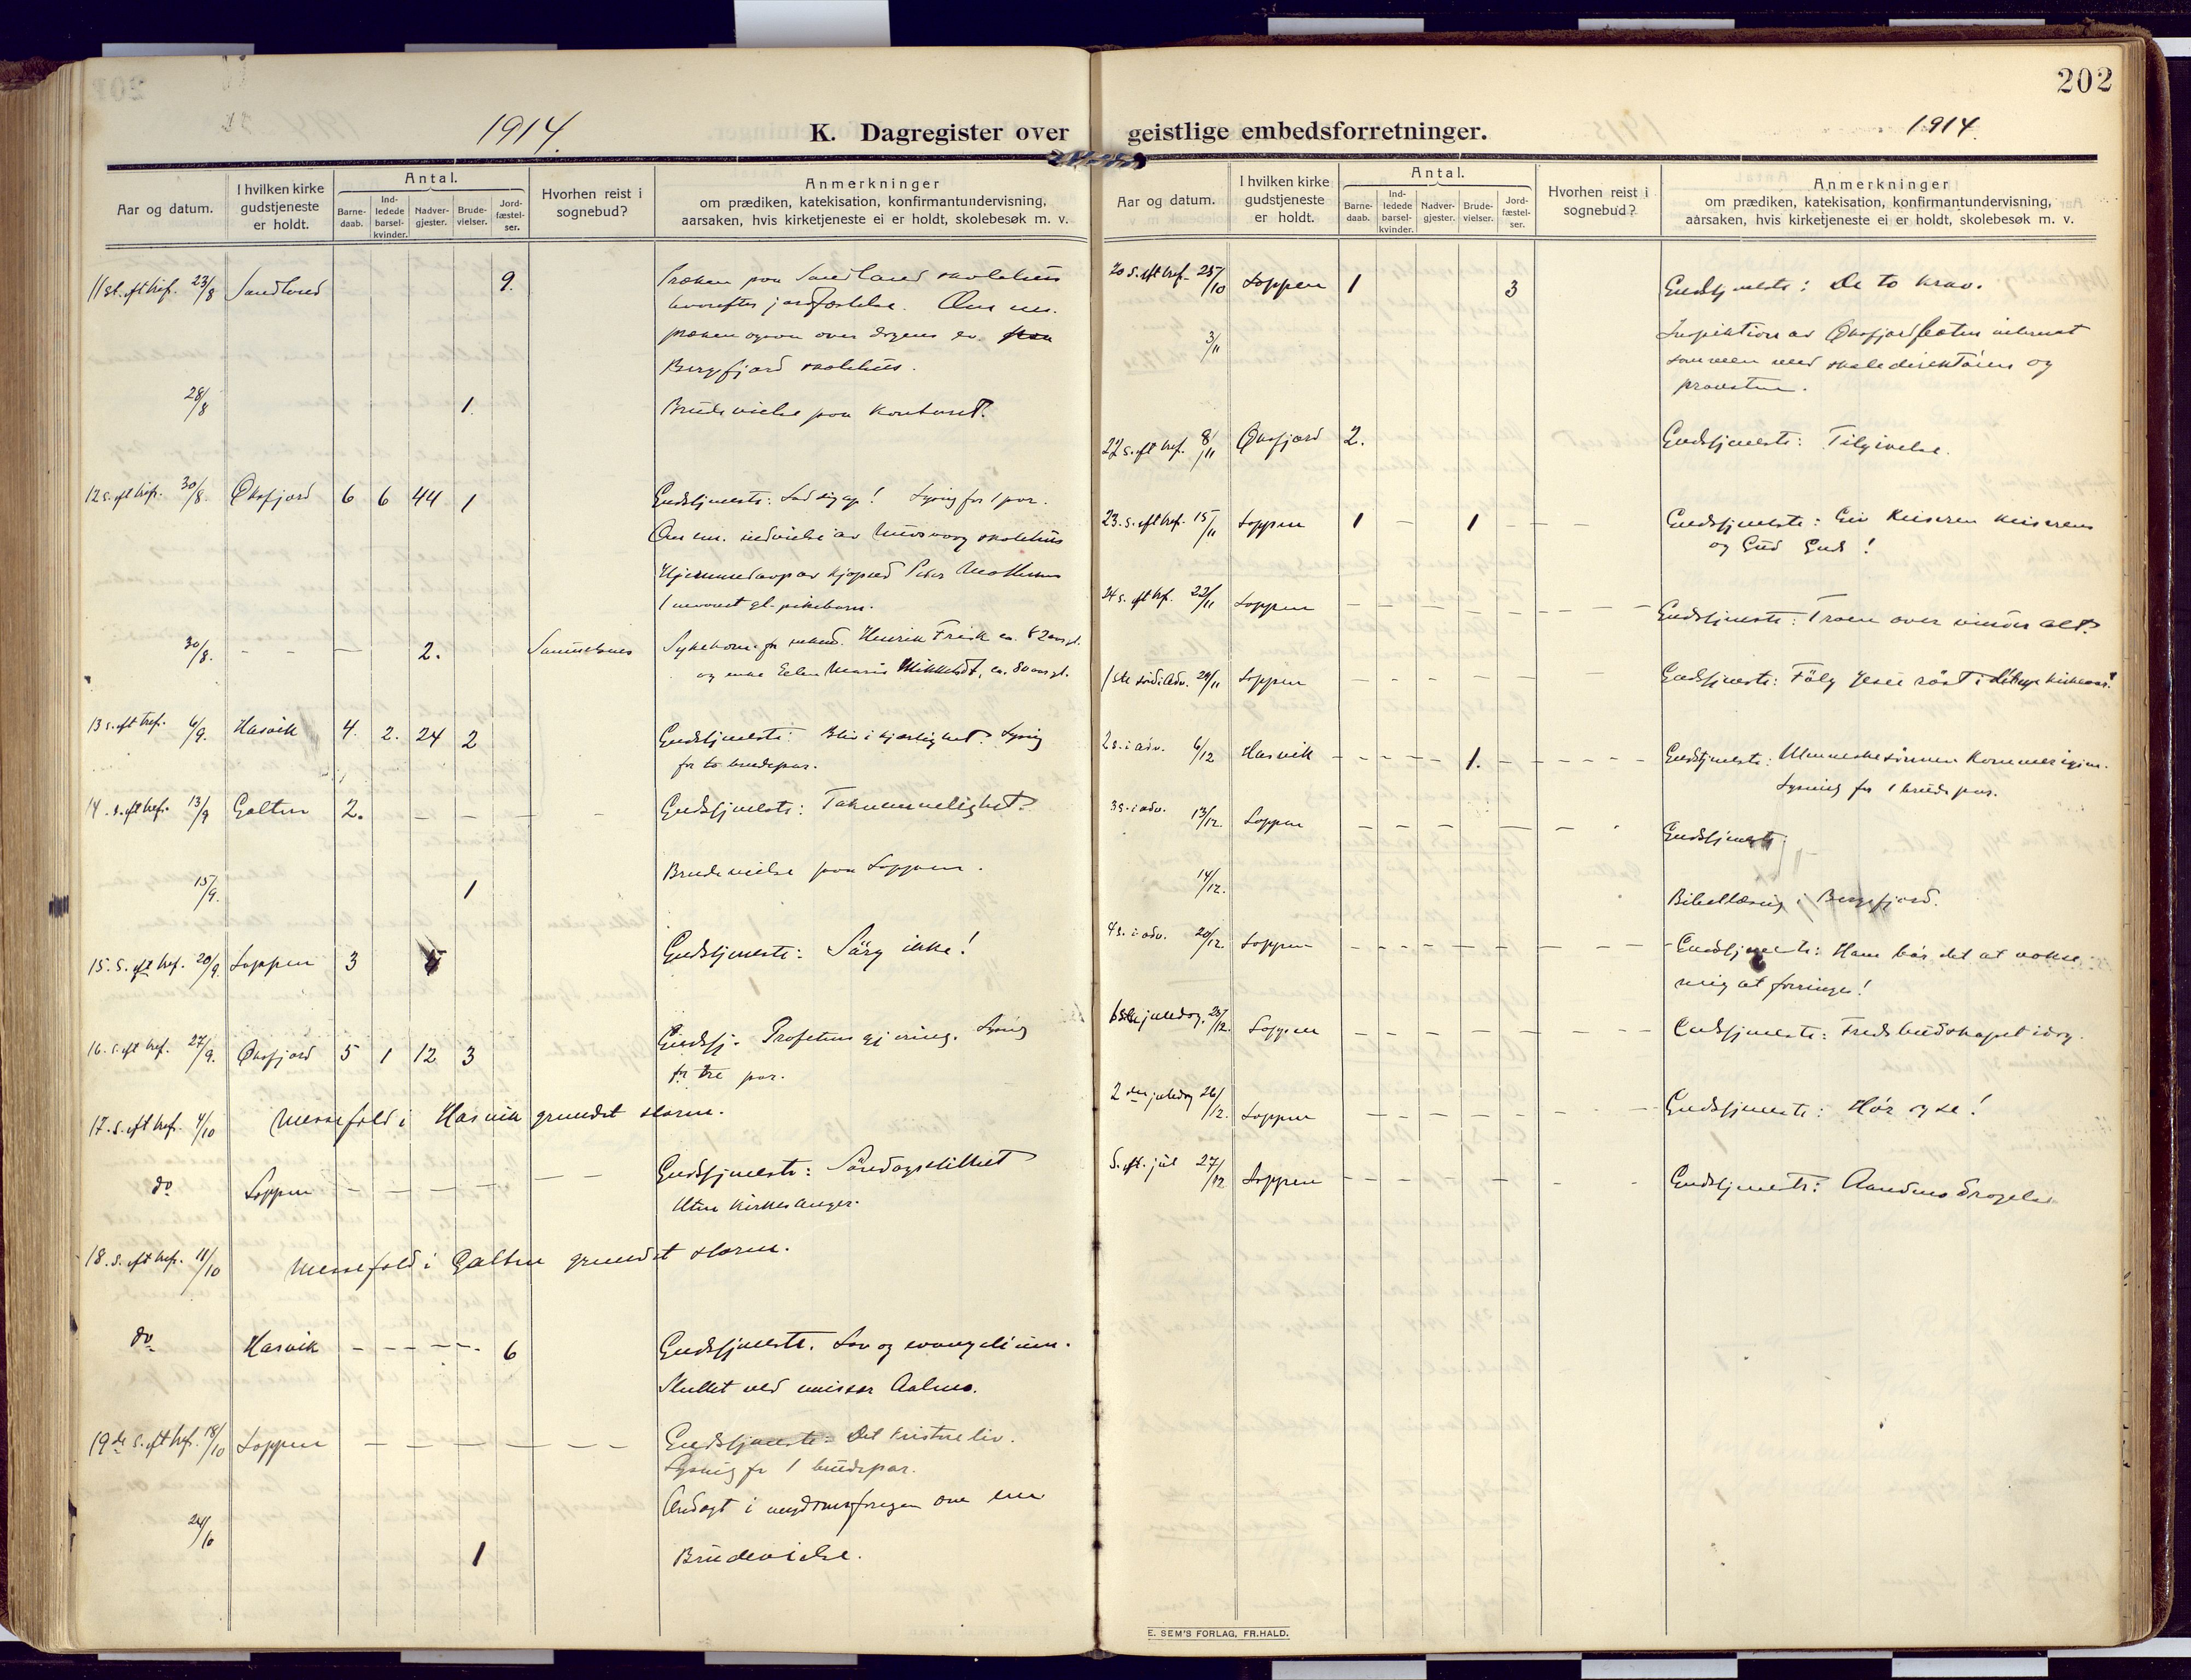 202
1914.
K. Dagregister over geistlige embedsforretninger.
1914.
Aar og datum.
I hvilken kirke gudstjeneste er holdt.
Antal.
Barne-daab.
Ind-ledede barsel-kvinder.
Nadver-gjester.
Brude-vielser.
Jord-fæstel-ser.
Hvorhen reist i sognebud?
Anmerkninger
om prædiken, katekisation, konfirmantundervisning,
aarsaken, hvis kirketjeneste ei er holdt, skolebesøk m. v.
11 s. eft tref. 23/8 Sandland 9. Præken paa Sandland skolehus
hvorefter jordfæstelse. Om em.
præken ogsaa over dagens ev.
Bergsfjord skolehus.
28/8 1. Brudevielse paa kontoret.
12 s. eft tref. 30/8. Øksfjord 6 6 44 1 Gudstjeneste: Lad dig op! Lysning for 1 par.
Om em. indvielse av skolehus
Hjemmedaap av kjøpmd Peder
1 gl. pikebarn.
30/8. - - - 2. Sykekom. fr Henrik Frisk ca. 82 aar gl.
og enke Ellen Marie ca. 80 aar gl.
13 s. eft tref. 6/9. Hasvik 4. 2. 24 2 Gudstjeneste: Bliv i kjærlighet. Lysning
for to brudepar.
14. s. eft tref. 13/9 Galten 2. - - - - Gudstjeneste: Taknemmelighet.
15/9. 1 Brudevielse paa Loppen.
15. S. eft tref. 20/9. Loppen 3 Gudstjeneste: Sörg ikke!
16. s. eft tref. 27/9. Øksfjord 5 1 12 3 Gudstj. Profetens gjerning. Lysning
for tre par.
17. s. eft tref. 4/10 Messefald i Hasvik grundet storm.
do Loppen - - - - - - - Gudstjeneste: Söndagsstilhet
Uten kirkesanger.
18. s. eft tref. 11/10 Messefald i Galten grundet storm.
do Hasvik - - - - - 6 Gudstjeneste. Lov og evangelium.
ved Aalmo.
19de S. eft tref. 18/10 Loppen - - - - - - - Gudstjeneste: Det kristne liv.
Lysning for 1 brudepar.
Andagt i ungdomsforeningen om em
24/10 1 Brudevielse.
Aar og datum.
I hvilken kirke gudstjeneste er holdt.
Antal.
Barne-daab.
Ind-ledede barsel-kvinder.
Nadver-gjester.
Brude-vielser.
Jord-fæstel-ser.
Hvorhen reist i sognebud?
Anmerkninger
om prædiken, katekisation, konfirmantundervisning,
aarsaken, hvis kirketjeneste ei er holdt, skolebesøk m. v.
20 s. eft tref. 25/10 Loppen 1 3 Gudstjeneste: De to krav.
3/11 Inspektion av Øksfjordbotn internat
sammen med skoledirektören og
provsten.
22 s. eft tref. 8/11 Øksfjord 2. Gudstjeneste: Tilgivelse.
23. s. eft tref. 15/11 Loppen 1 - 1 - - - Gudstjeneste: Giv keiseren keiserens
og Gud Guds!
24 s. eft tref. 22/11 Loppen - - - - - - - Gudstjeneste: Troen overvinder alt.
1ste sönd. i Adv. 29/11 Loppen - - - - - - - Gudstjeneste: Fölg Jesu röst i det nye kirkeaar!
2 s. i adv. 6/12 Hasvik - - - - 1. - - - - Gudstjeneste: Menneskesönnen kommer igjen.
Lysning for 1 brudepar.
3 s. i adv. 13/12. Loppen - - - - - - Gudstjeneste
14/12. Bibellæsning i Bergsfjord.
4 s. i adv. 20/12. Loppen - - - - - - - Gudstjeneste: Ham bör det at vokse
mig at forringes!
1ste juledag. 25/12. Loppen - - - - - - Gudstjeneste: Fredsbudskapet idag.
2den juledag 26/12. Loppen - - - - - - - Gudstjeneste: Hör og se!
S. eft. jul 27/12 Loppen - - - - - - - Gudstjeneste: Aandens dragelse
E. SEM'S FORLAG, FR.HALD.